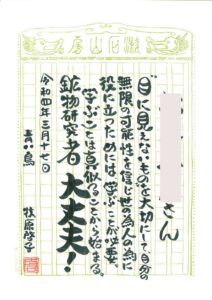 漱石山房
さん
目に見えないものを大切にして、自分の
無限の可能性を信じ世の為人の為に
役に立つためには、学ぶことが必要。
学ぶことは真似ることから始まる。
鉱物研究者 大丈夫！
令和四年三月十七日
青い鳥
牧原啓子